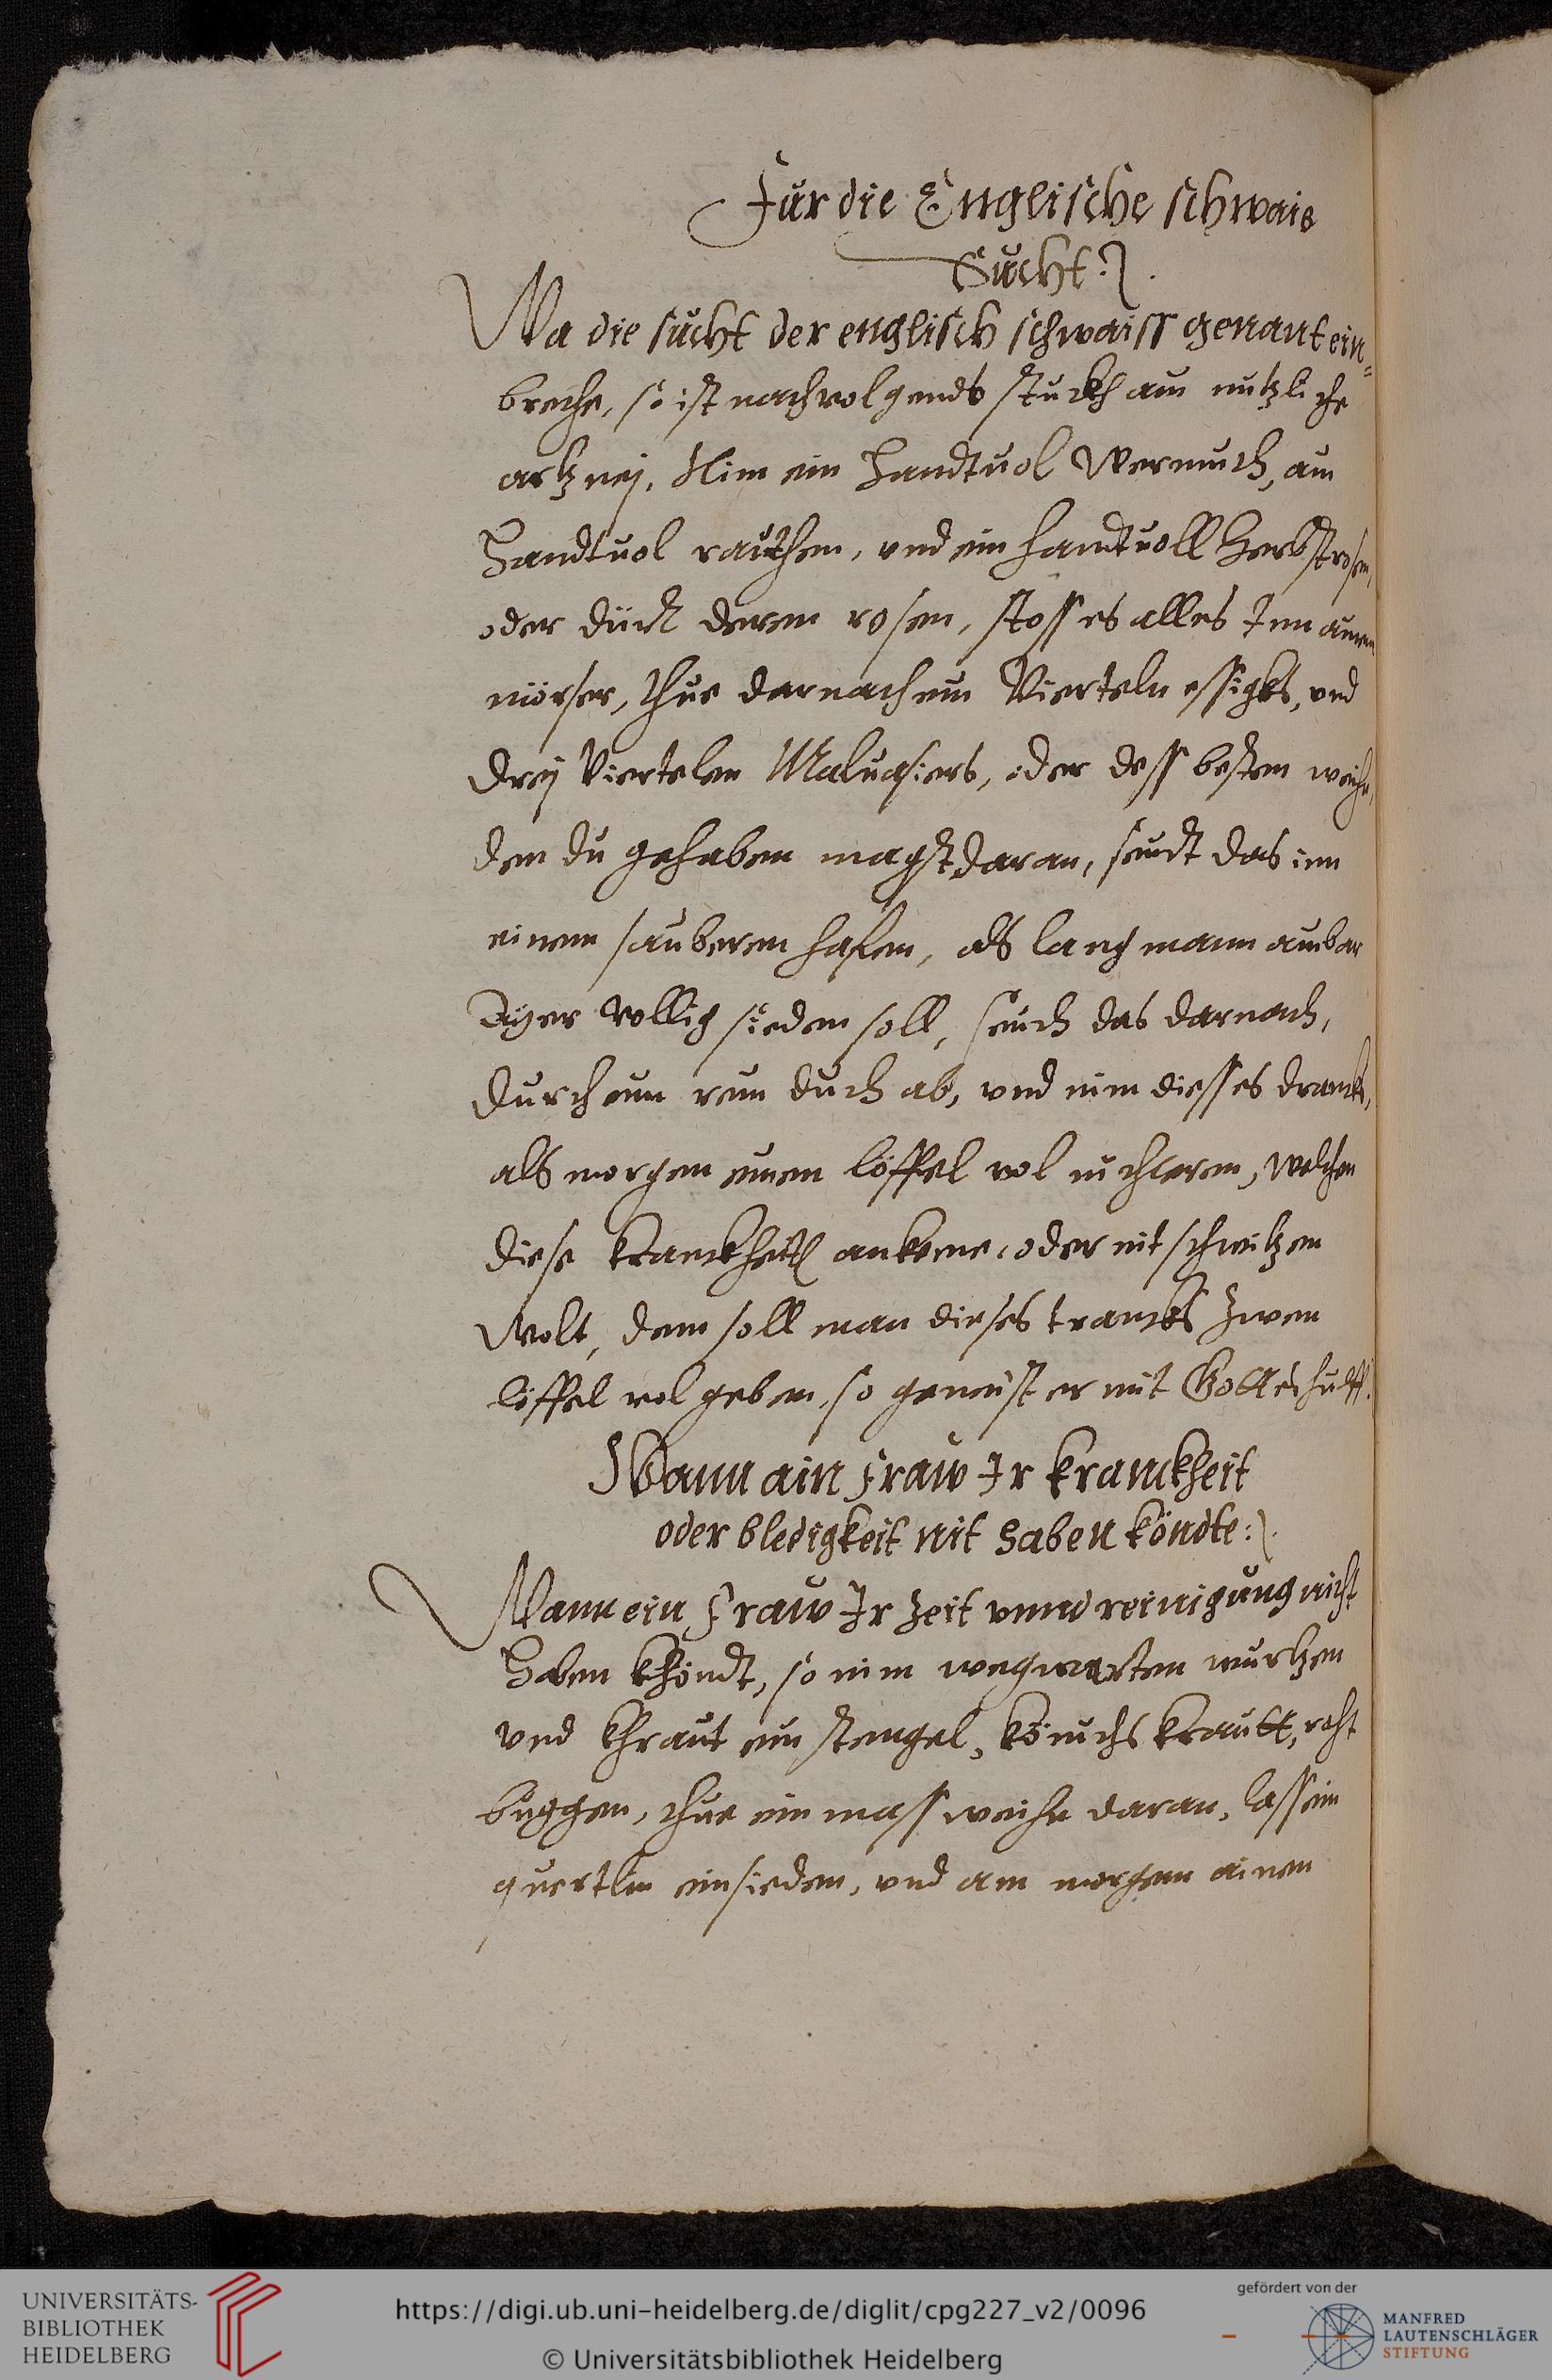 Fur die Englische schwais
Sucht:
Wa die sucht der englisch schwaiss genant ein=
breche, so ist nachvolgends stuckh ain nutzliche
artznej, Nim ein Handtuol Wermuth, ain
Handtuol rauthen, vnd ein handtuoll Herbstrosen,
oder dück deren rosen, stoss es alles Inn ainen
mörser, thue darnach ein Vierteln essigks, vnd
drej Viertelen Maluasiers, oder dess besten weihn,
den du gehaben magst daran, seudt das inn
einem sauberen hafen, als lang mann ain bar
Ayer vollig sieden soll, seich das darnach,
durch ein rein duch ab, vnd nim diesses dranks,
als morgen einen löffel vol nuchteren, welchen
diese kranckheit ankeme, oder nit schwitzen
wolt, dem soll man dieses trancks zwen
löffel vol geben, so geneust er mit Gottes hulff.
Wann ain fraw Ir kranckheit
oder bledigkeit nit haben köndte:
Wann ein fraw Ir Zeit vnnd reinigung nicht
Haben khöndt, so nim wegwarten wurtzen
vnd khraut ein stengel, könichs krautt, roht
buggen, thue ein mass weihn daran, lass ein
quertlin einsieden, vnd am morgen ainen
UNIVERSITÄTS-
BIBLIOTHEK
HEIDELBERG
https://digi.ub.uni-heidelberg.de/diglit/cpg227_v2/0096
© Universitätsbibliothek Heidelberg
gefördert von der
MANFRED
LAUTENSCHLÄGER
STIFTUNG